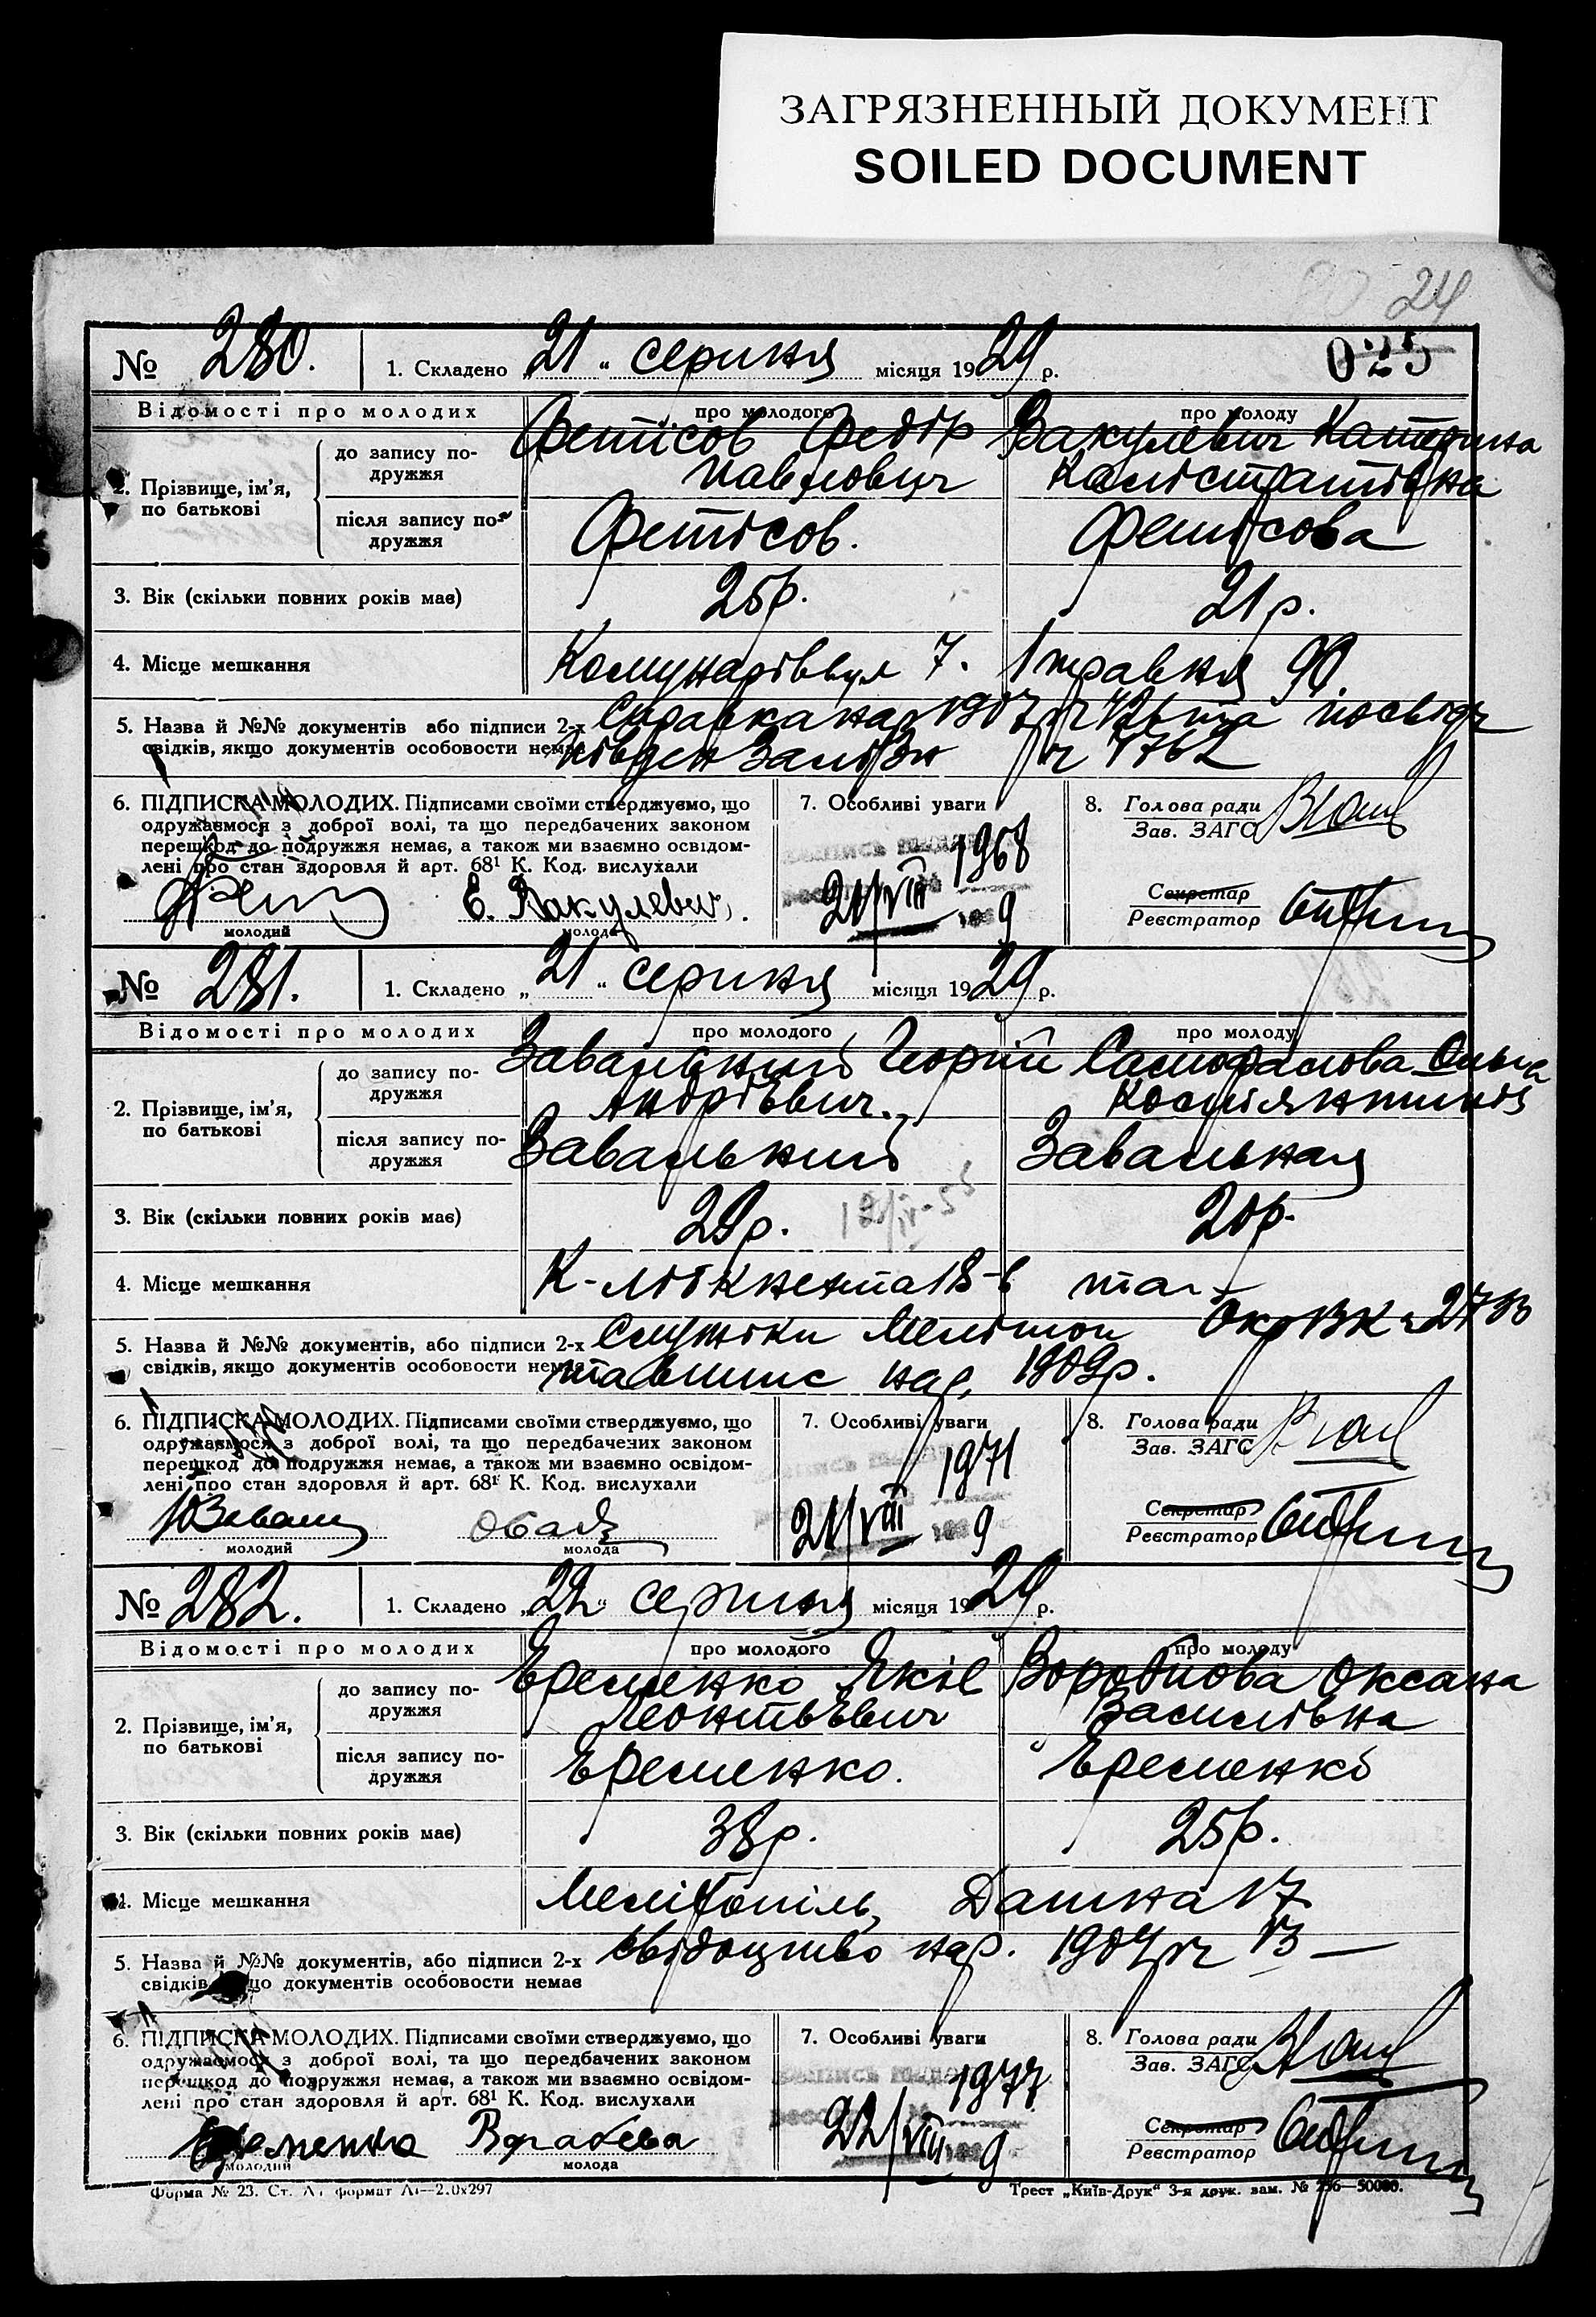 ЗАГРЯЗНЕННЫЙ ДОКУМЕНТ
SOILED DOCUMENT
24
025
№ 280. 1. Складено „21“ серпня місяця 1929 р.
Відомості про молодих про молодого про молоду
2. Прізвище, ім’я, по батькові
до запису подружжя
Фетісов Федір Вакулевич Катерина
Павлович Калістратівна
після запису подружжя
Фетісов. Фетісова
3. Вік (скільки повних років має) 25р. 21р.
4. Місце мешкання Комунарів вул 7. 1 травня 90.
5. Назва й №№ документів або підписи 2-х Справка нар 1907р та посвідч
свідків, якщо документів особовости немає Півден Залізн ч 4762
6. ПІДПИСКА МОЛОДИХ. Підписами своїми стверджуємо, що
одружаємося з доброї волі, та що передбачених законом
перешкод до подружжя немає, а також ми взаємно освідом-
лені про стан здоровля й арт. 68¹ К. Код. вислухали
Е. Вакулевич.
молодий молода
7. Особливі уваги
1968
21/VIII 9
8. Голова ради
Зав. ЗАГС
Секретар
Реєстратор
№ 281. 1. Складено „21“ серпня місяця 1929 р.
Відомості про молодих про молодого про молоду
2. Прізвище, ім’я, по батькові
до запису подружжя
Завальский Георгій Ольга
Андрієвич.
після запису подружжя
Завальький Завалькая
3. Вік (скільки повних років має) 28р. 20р.
4. Місце мешкання К-Лібкнехта 18-в та-
5. Назва й №№ документів, або підписи 2-х Мелітоп ОкрВК
свідків, якщо документів особовости немає нар. 1909р.
6. ПІДПИСКА МОЛОДИХ. Підписами своїми стверджуємо, що
одружаємося з доброї волі, та що передбачених законом
перешкод до подружжя немає, а також ми взаємно освідом-
лені про стан здоровля й арт. 68¹ К. Код. вислухали
молодий молода
7. Особливі уваги
1971
21/VIII 9
8. Голова ради
Зав. ЗАГС
Секретар
Реєстратор
№ 282. 1. Складено „22“ серпня місяця 1929 р.
Відомості про молодих про молодого про молоду
2. Прізвище, ім’я, по батькові
до запису подружжя
Єременко Яків Воробйова Оксана
Леонтьєвич Василівна
після запису подружжя
Єременко. Єременко
3. Вік (скільки повних років має) 38р. 25р.
4. Місце мешкання Мелітопіль, 17
5. Назва й №№ документів, або підписи 2-х Свідоцтво нар. 1904р ч 13 —
свідків якщо документів особовости немає
6. ПІДПИСКА МОЛОДИХ. Підписами своїми стверджуємо, що
одружаємося з доброї волі, та що передбачених законом
перешкод до подружжя немає, а також ми взаємно освідом-
лені про стан здоровля й арт. 68¹ К. Код. вислухали
молодий молода
7. Особливі уваги
1977
22/VIII 9
8. Голова ради
Зав. ЗАГС
Секретар
Реєстратор
Форма № 23. Трест „Київ-Друк“ 3-я друк. зам. № 256—50000.